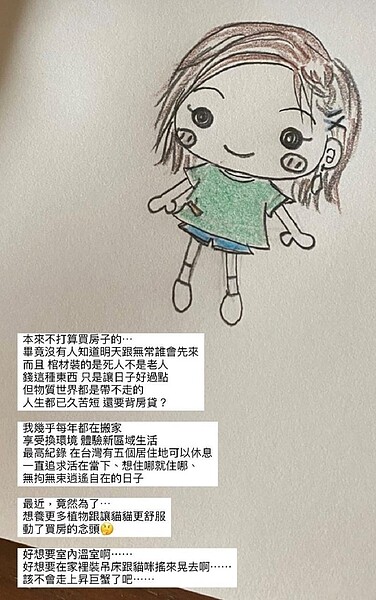 本來不打算買房子的⋯
畢竟沒有人知道明天跟無常誰會先來
而且 棺材裝的是死人不是老人
錢這種東西 只是讓日子好過點
但物質世界都是帶不走的
人生都已久苦短 還要背房貸？
我幾乎每年都在搬家
享受換環境 體驗新區域生活
最高紀錄 在台灣有五個居住地可以休息
一直追求活在當下、想住哪就住哪、
無拘無束逍遙自在的日子
最近，竟然為了⋯
想養更多植物跟讓貓貓更舒服
動了買房的念頭🤔
好想要室內溫室啊⋯⋯
好想要在家裡裝吊床跟貓咪搖來晃去啊⋯⋯
該不會走上昇巨蟹了吧⋯⋯